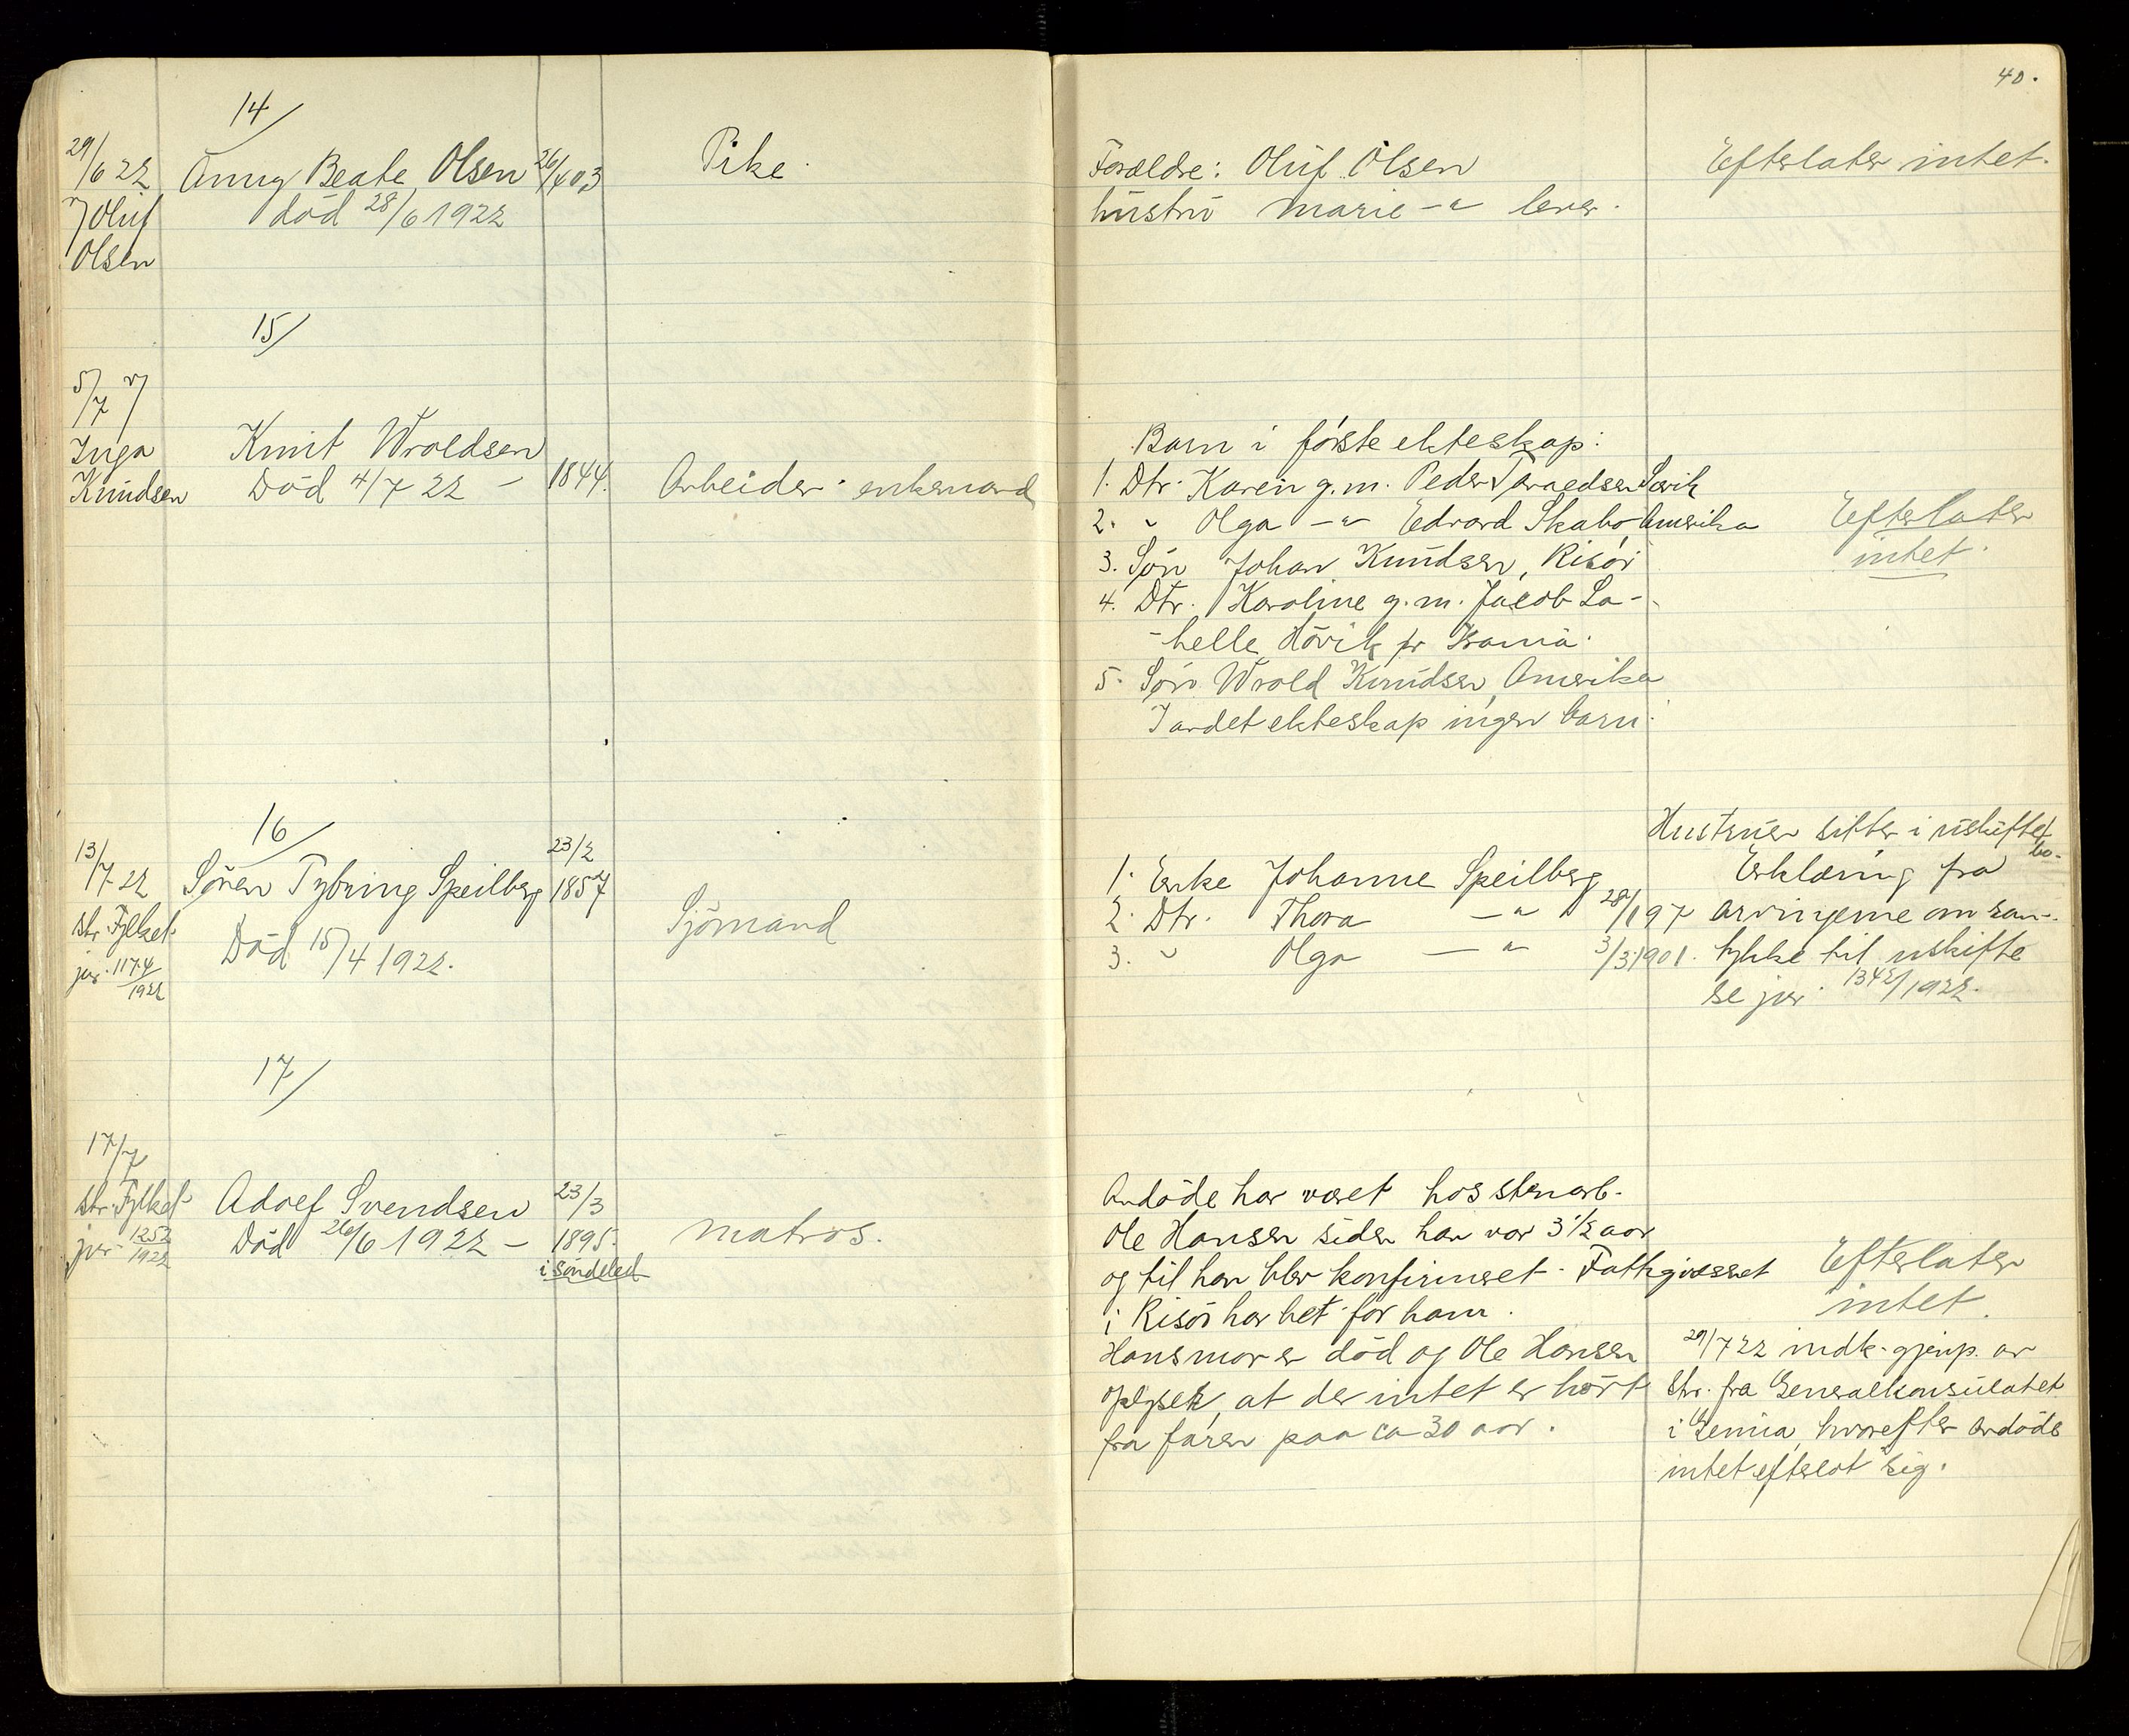 40.
14/
29/6 22 Anny Beate Olsen 26/4 03 Pike.
v/ Oluf død 28/6 1922
Olsen
Forældre: Oluf Olsen
hustru Marie -"- lever.
Efterlater intet.
15/
5/7 v/
Inga Knut Wroldsen
Knudsen Død 4/7 22 - 1844. Arbeider - enkemand
Barn i første ekteskap:
1. Dtr. Karen g.m. Peder
2. " Olga -"- Edvard Skabo, Amerika
3. Søn Johan Knudsen, Risør
4. Dtr. Karoline g.m. Jacob La-
-helle, Høvik pr
5. Søn Wrold Knudsen, Amerika
I andet ekteskap ingen barn.
Efterlater
intet.
16/
13/7 22 Søren Tybring Speilberg 23/2
1857
skr. Fylket Død 15/4 1922. Sjømand
jur. 1174/1922
1. Enke Johanne Speilberg
2. Dtr. Thora -"- 28/1 97
3. " Olga -"- 3/3 1901.
Hustruen sitter i uskiftet
bo.
Erklæring fra
arvingerne om sam-
tykke til uskifte
se jur. 1342/1922.
17/
17/7
skr. Fylket Adolf Svendsen 23/3
jur. 1252/1922 Død 26/6 1922 - 1895. Matros.
i Søndeled
Avdøde har været hos stenarb.
Ole Hansen siden han var 3 1/2 aar
og til han blev konfirmeret. Fattigvæsenet
i Risør har bet. for ham.
Hans mor er død og Ole Hansen
oplyser, at der intet er hørt
fra faren paa ca 30 aar.
Efterlater
intet.
29/7 22 indk. gjenp. av
skr. fra Generalkonsulatet
i Genua, hvorefter avdøde
intet efterlot sig.